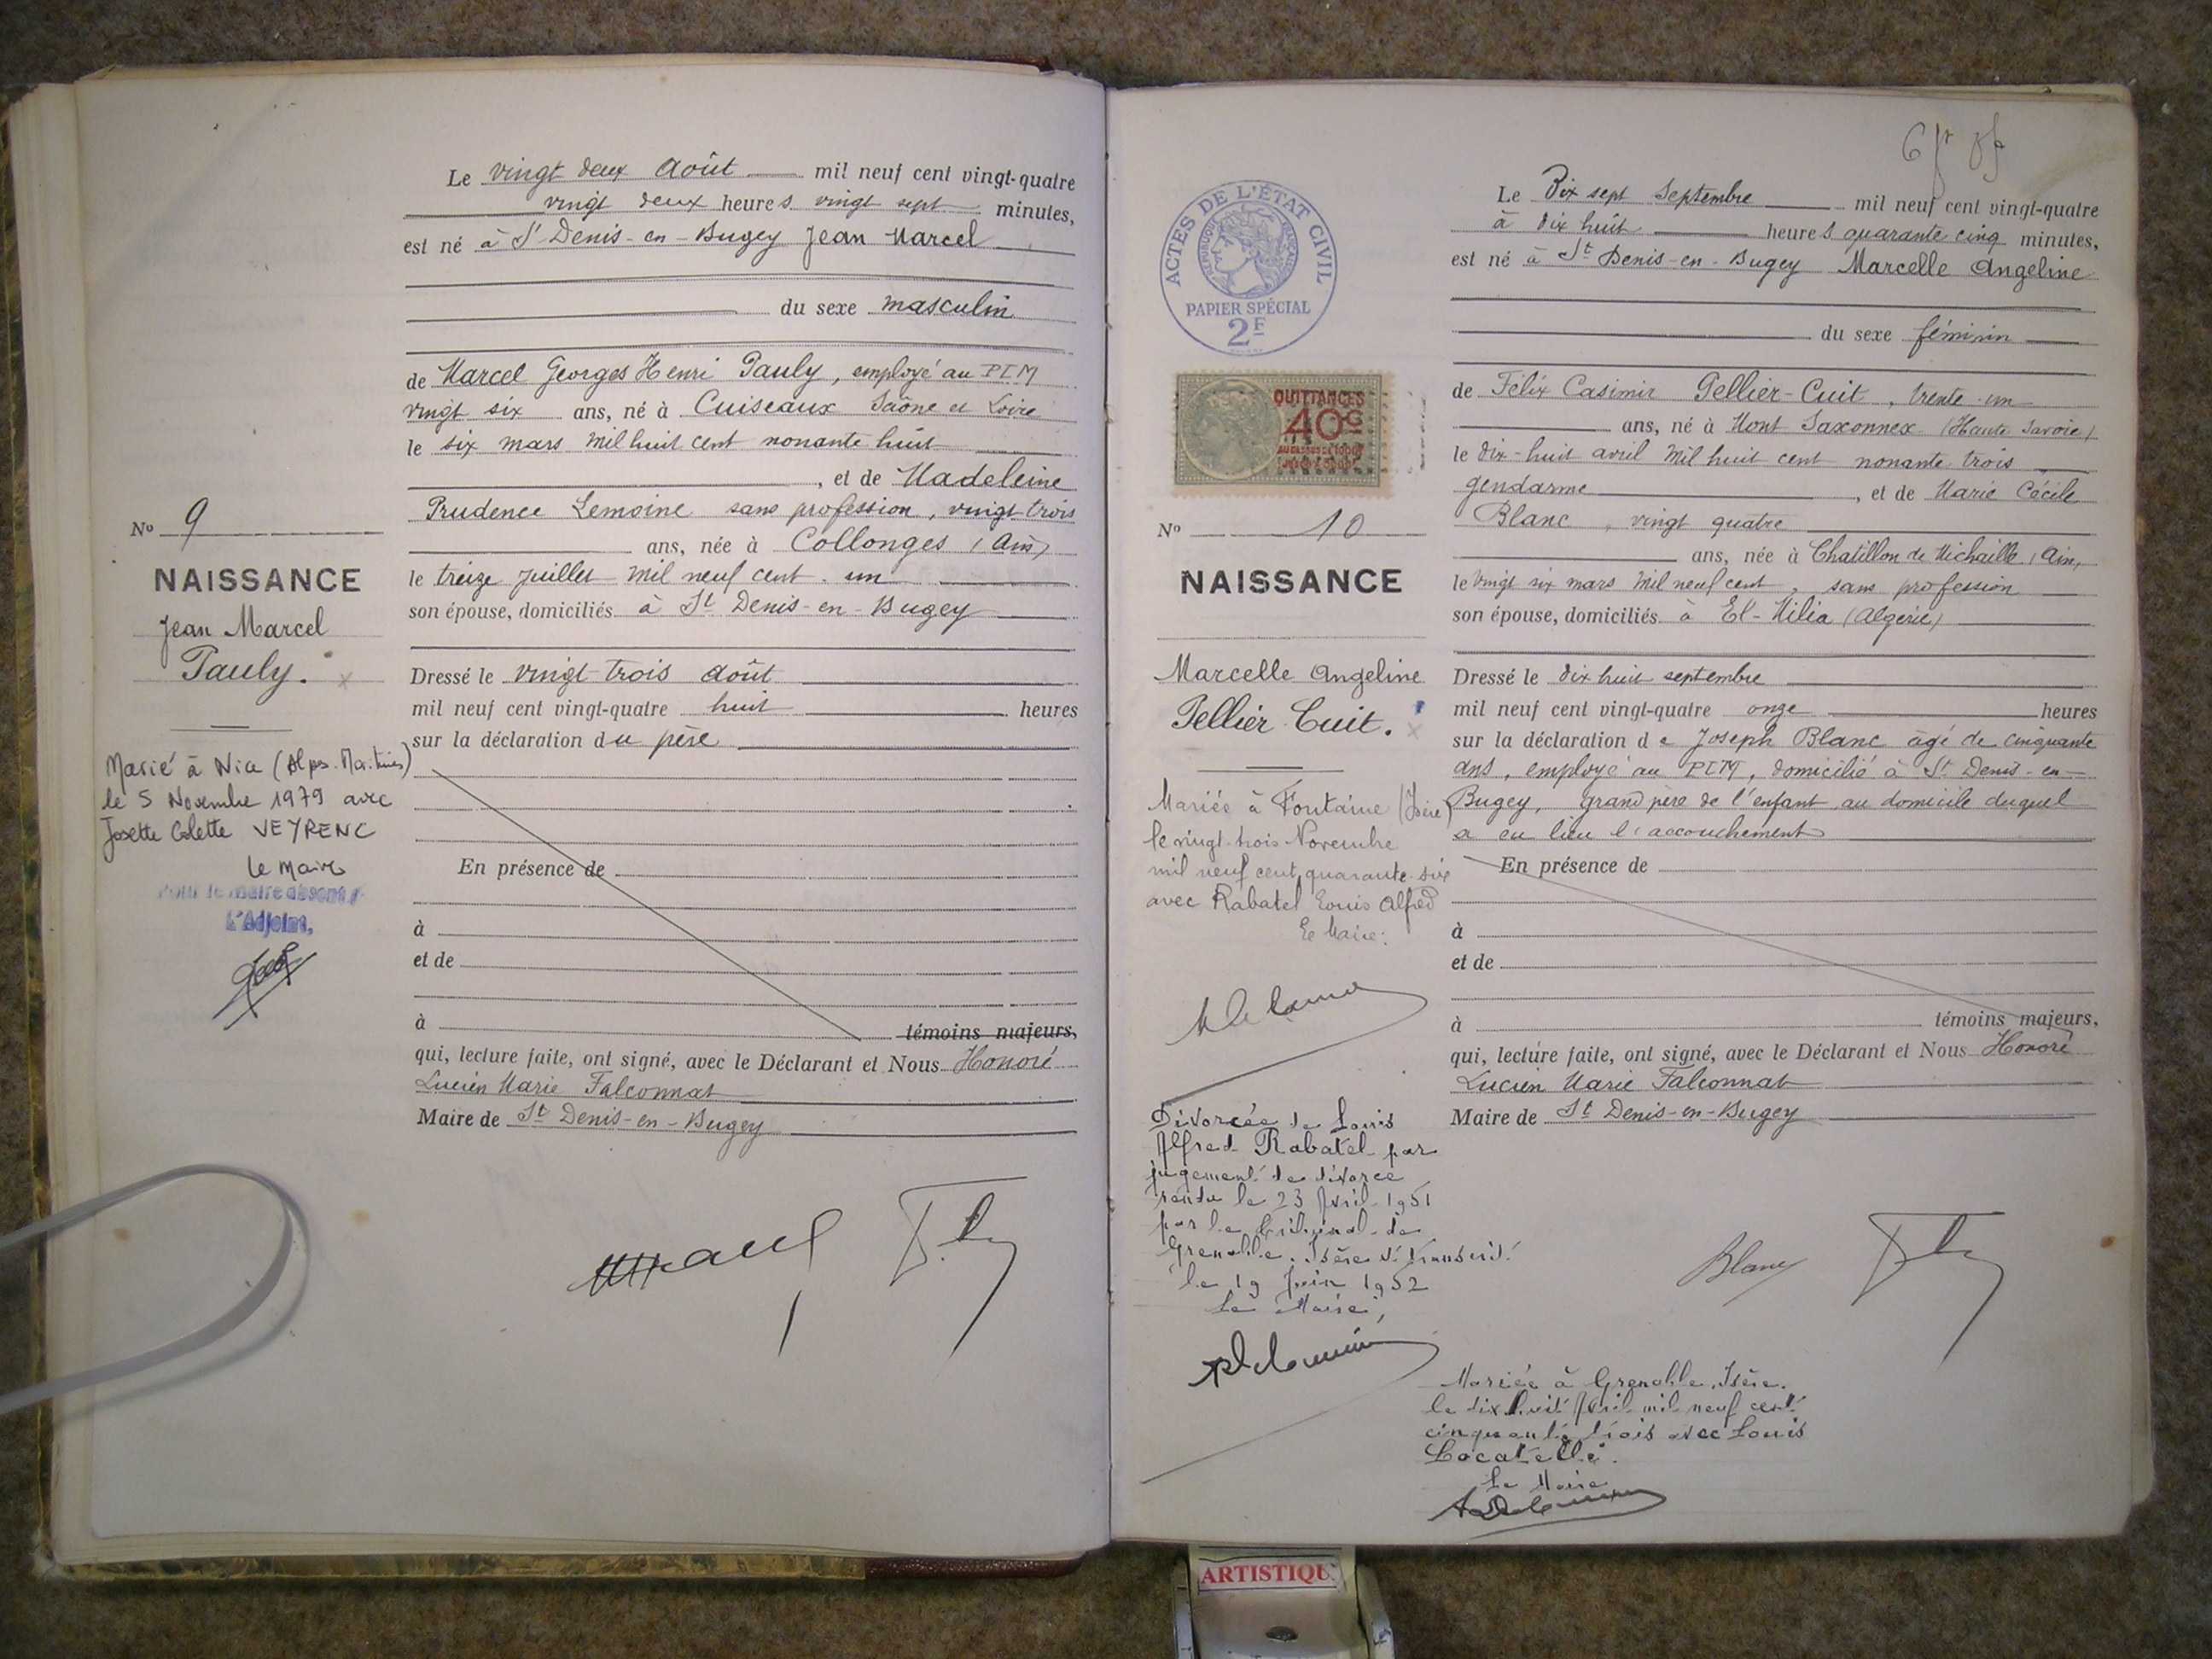 Le vingt deux Août mil neuf cent vingt-quatre
vingt deux heures vingt sept minutes,
est né à St Denis-en-Bugey Jean Marcel
du sexe masculin
de Marcel Georges Henri Pauly, employé au PLM
vingt six ans, né à Cuiseaux Saône et Loire
le six mars mil huit cent nonante huit
, et de Madeleine
Prudence Lemoine sans profession, vingt-trois
ans, née à Collonges (Ain)
le treize Juillet mil neuf cent un
son épouse, domiciliés à St Denis-en-Bugey
Dressé le vingt trois Août
mil neuf cent vingt-quatre huit heures
sur la déclaration du père
En présence de
à
et de
à témoins majeurs,
qui, lecture faite, ont signé, avec le Déclarant et Nous Honoré
Lucien Marie Falconnat
Maire de St Denis-en-Bugey
No 9
NAISSANCE
Jean Marcel
Pauly.
Marié à Nice (Alpes-Maritimes)
le 5 Novembre 1979 avec
Josette Colette VEYRENC
Le Maire
Pour le Maire absent
L'Adjoint,
ACTES DE L'ÉTAT CIVIL
RÉPUBLIQUE FRANÇAISE
PAPIER SPÉCIAL
2F
QUITTANCES
40c
No 10
NAISSANCE
Marcelle Angeline
Pellier Cuit.
Mariée à Fontaine (Isère)
le vingt-trois Novembre
mil neuf cent quarante-six
avec Rabatel Louis Alfred
Le Maire:
Divorcée de Louis
Alfred Rabatel par
jugement de divorce
rendu le 23 Avril 1951
par le tribunal de
Grenoble, Isère et transcrit
le 19 Juin 1952
Le Maire,
Le Dix sept Septembre mil neuf cent vingt-quatre
à dix huit heures quarante cinq minutes,
est né à St Denis-en-Bugey Marcelle Angeline
du sexe féminin
de Félix Casimir Pellier-Cuit, trente-un
ans, né à Mont Saxonnex (Haute Savoie)
le dix-huit avril mil huit cent nonante trois
gendarme, et de Marie Cécile
Blanc, vingt quatre
ans, née à Chatillon de Michaille (Ain)
le vingt six mars mil neuf cent, sans profession
son épouse, domiciliés à El-Milia (Algérie)
Dressé le dix huit septembre
mil neuf cent vingt-quatre onze heures
sur la déclaration de Joseph Blanc âgé de cinquante
ans, employé au PLM, domicilié à St Denis-en-
Bugey, grand père de l'enfant au domicile duquel
a eu lieu l'accouchement
En présence de
à
et de
à témoins majeurs,
qui, lecture faite, ont signé, avec le Déclarant et Nous Honoré
Lucien Marie Falconnat
Maire de St Denis-en-Bugey
Blanc
Mariée à Grenoble, Isère.
le dix huit Avril mil neuf cent
cinquante trois avec Louis
Locatelli.
Le Maire
ARTISTIQU